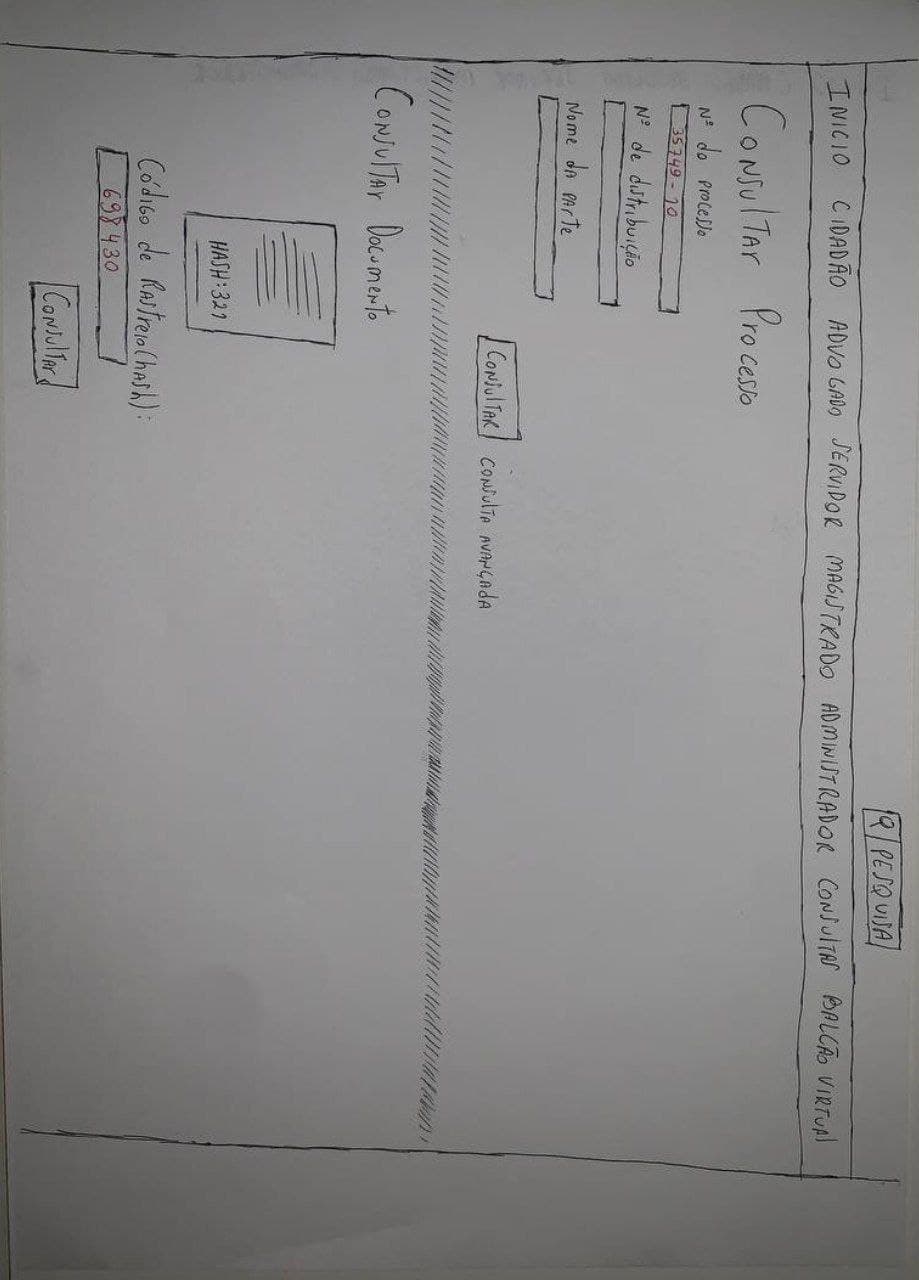 PESQUISA
INICIO CIDADÃO ADVOGADO SERVIDOR MAGISTRADO ADMINISTRADOR CONSULTAS BALCÃO VIRTUAL
Consultar Processo
Nº do processo
35749-10
Nº de distribuição
Nome da parte
Consultar Consulta avançada
Consultar Documento
HASH:321
Código de Rastreio(hash):
698430
Consultar